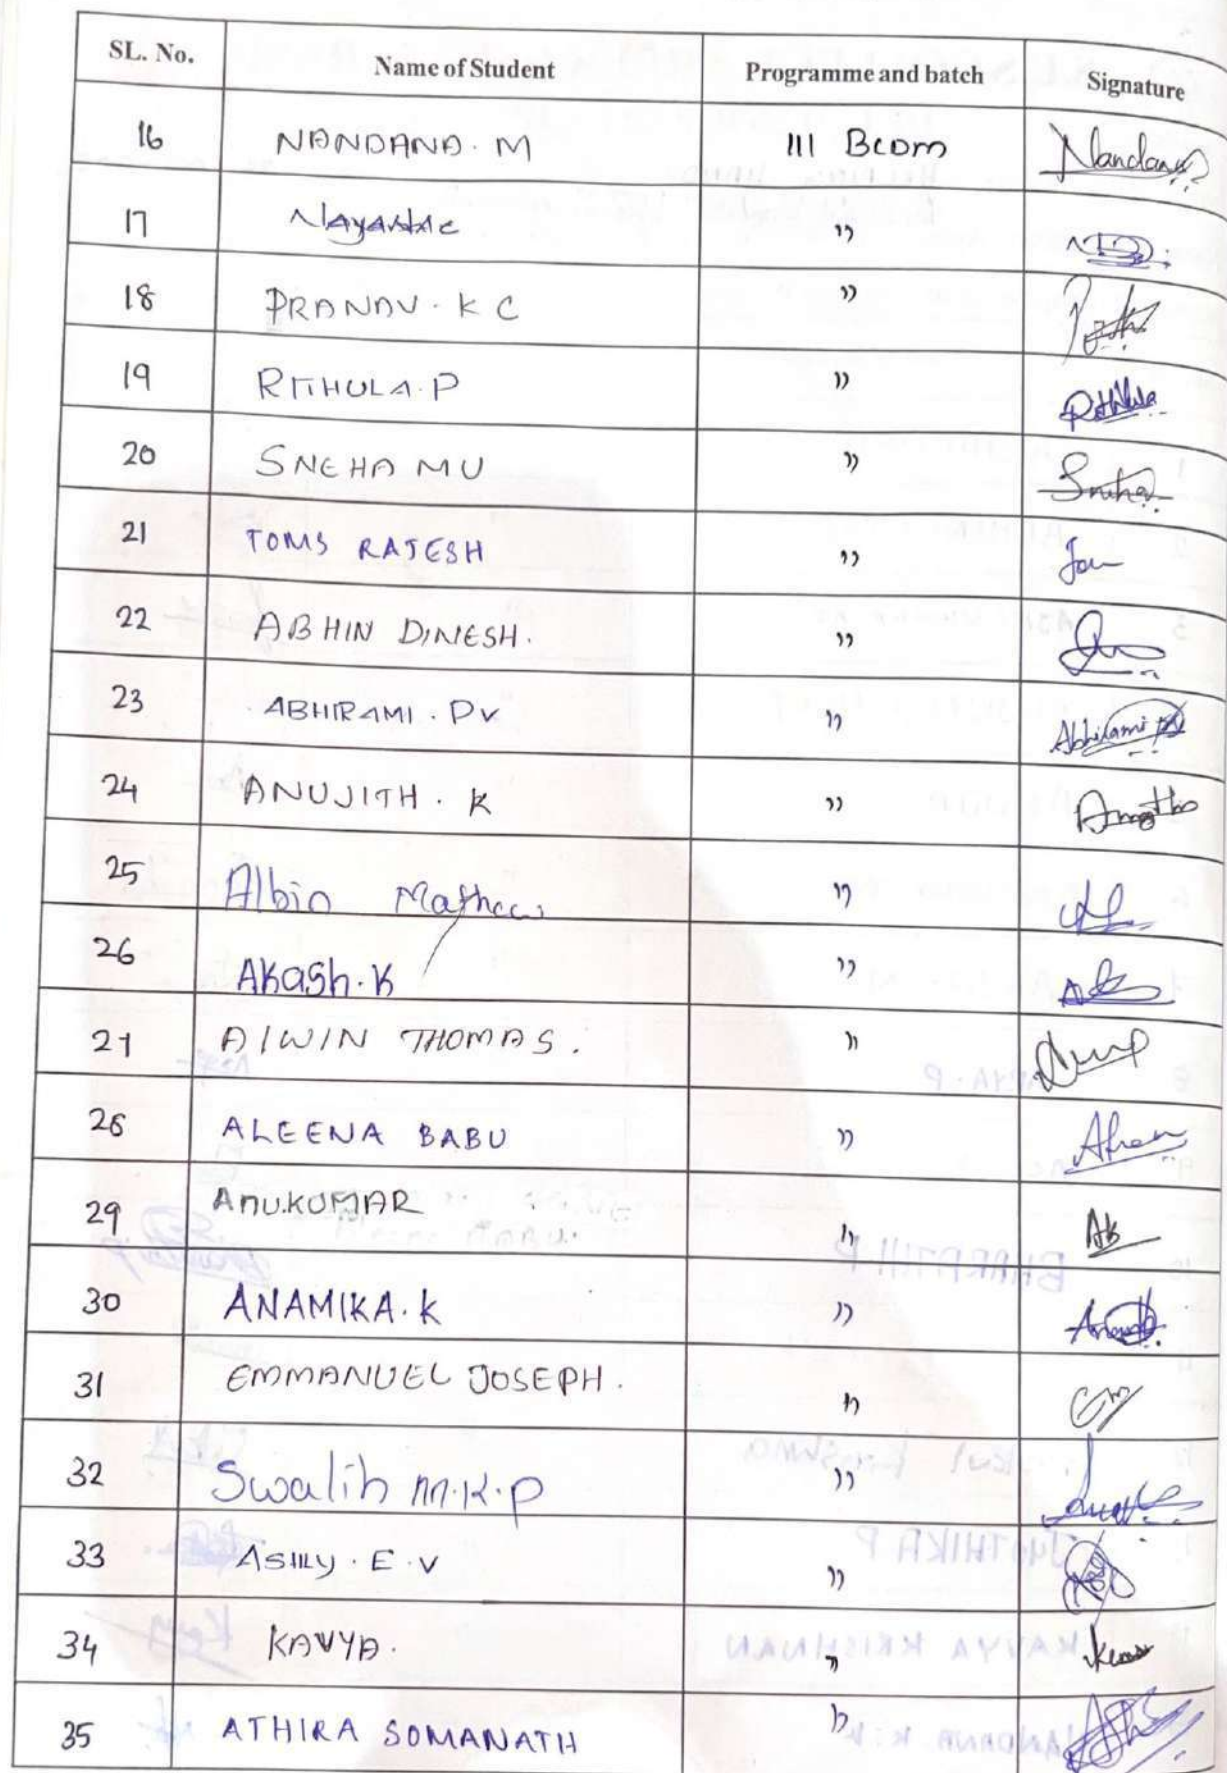 SL. No. Name of Student Programme and batch Signature
16 NANDANA. M III Bcom Nandana
17 ”
18 PRANAV. K C ”
19 RITHULA. P ” Rithula
20 SNEHA MU ” Sneha
21 TOMS RAJESH ”
22 ABHIN DINESH. ”
23 ABHIRAMI. PV ” Abhirami PV
24 ANUJITH. K ”
25 Albin Mathew ”
26 Akash. K ”
27 ALWIN THOMAS. ”
28 ALEENA BABU ”
29 ANU.KUMAR ” AK
30 ANAMIKA. K ”
31 EMMANUEL JOSEPH. ”
32 Swalih M.K.P ”
33 ASHLY. E. V ”
34 KAVYA. ”
35 ATHIRA SOMANATH ”